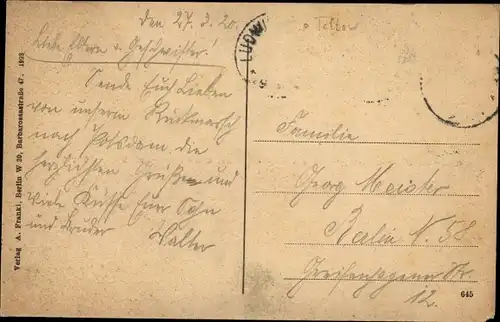 den 27.3.20.
Liebe Eltern u. Geschwister!
Sende Euch Lieben
von unserm Rückmarsch
nach Potsdam die
herzlichsten Grüße und
viele Küsse Euer Sohn
und Bruder
Walter
Teltow
LUDW
Familie
Georg Meister
Berlin N. 58
Greifenhagener Str.
12.
645
Verlag A. Frankl, Berlin W 30, Barbarossastraße 47.